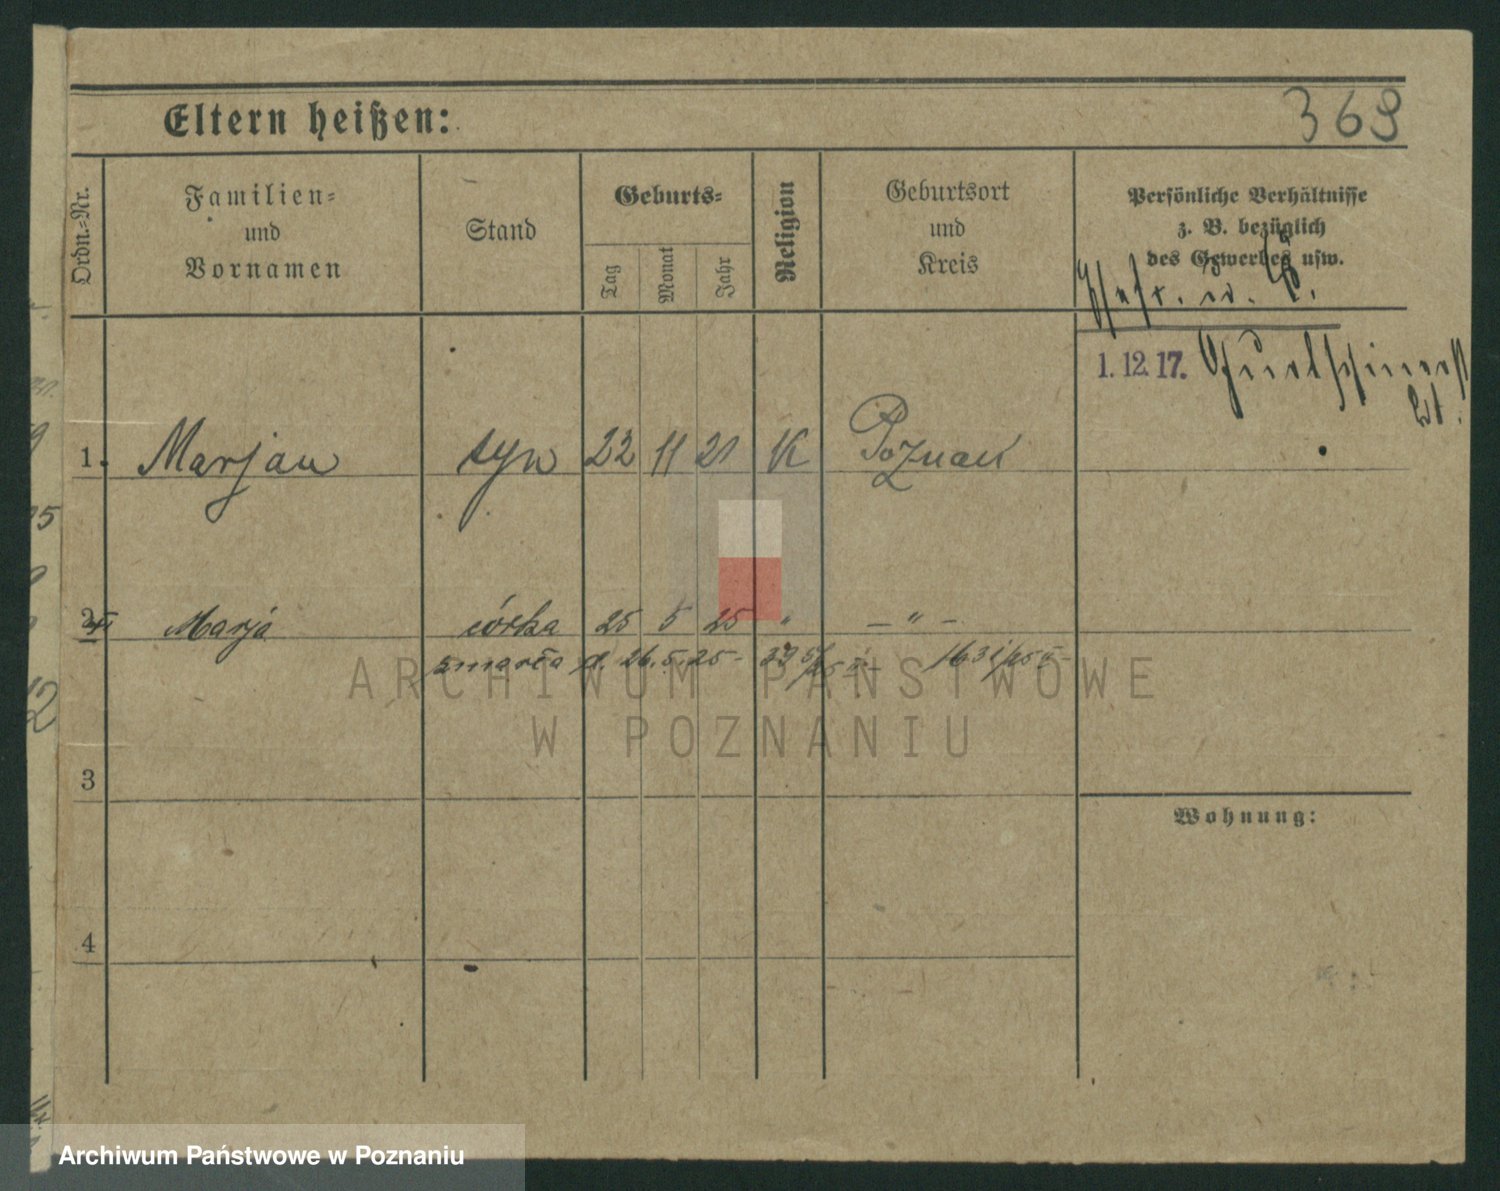 Eltern heißen:
369
Ordn.-Nr.
Familien-
und
Vornamen
Stand
Geburts-
Tag
Monat
Jahr
Religion
Geburtsort
und
Kreis
Persönliche Verhältnisse
z. B. bezüglich
des Gewerbes usw.
1. 12. 17.
1. Marjan syn 22 11 21 K Poznań
2 Marja córka 25 5 25 " — " —
zmarła d. 26.5.25 -
3
4
Wohnung:
ARCHIWUM PAŃSTWOWE
W POZNANIU
Archiwum Państwowe w Poznaniu